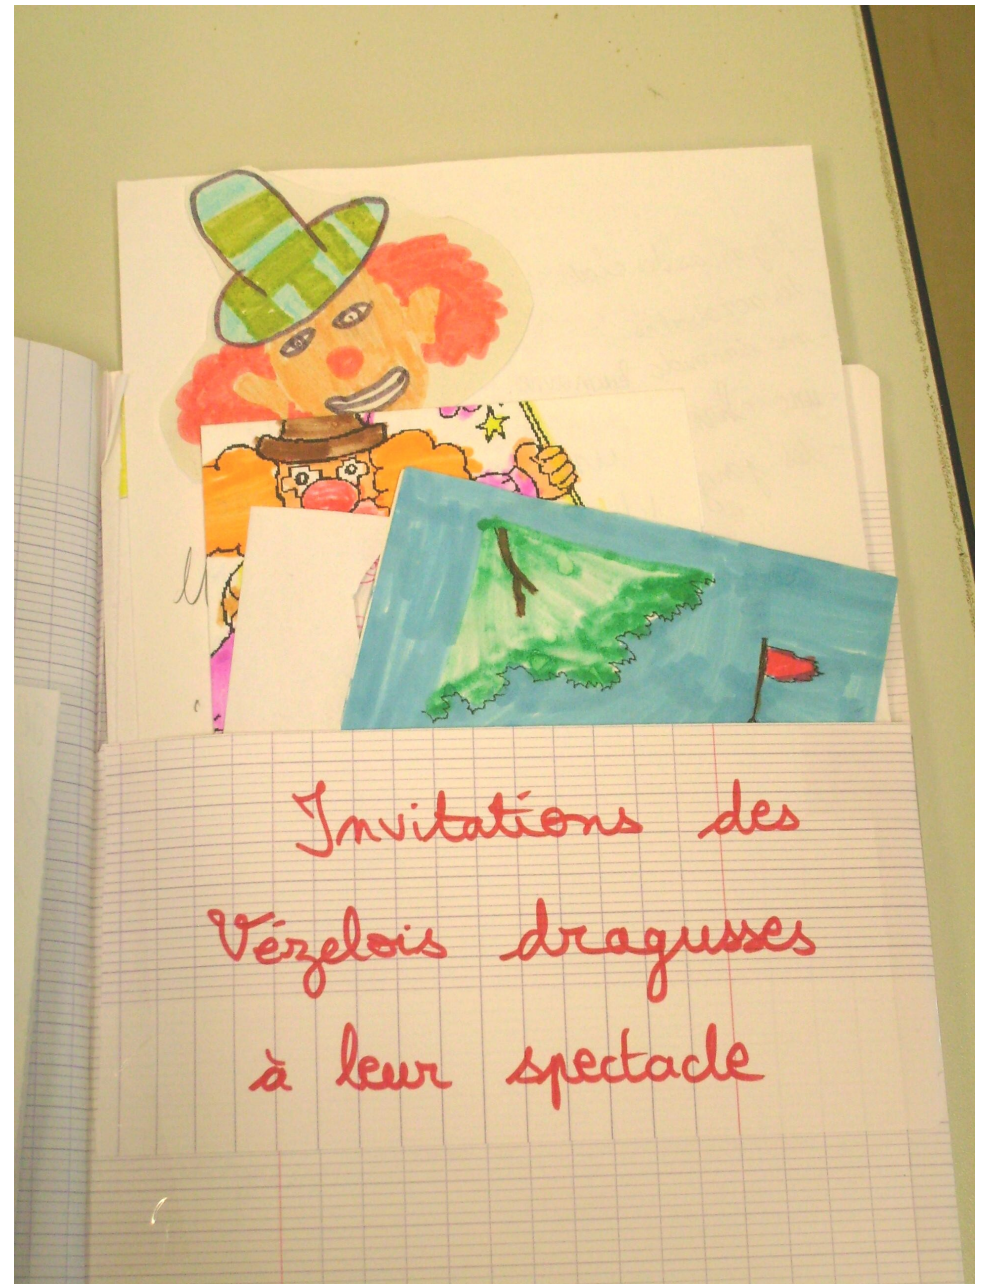 Invitations des
Vézelois dragusses
à leur spectacle